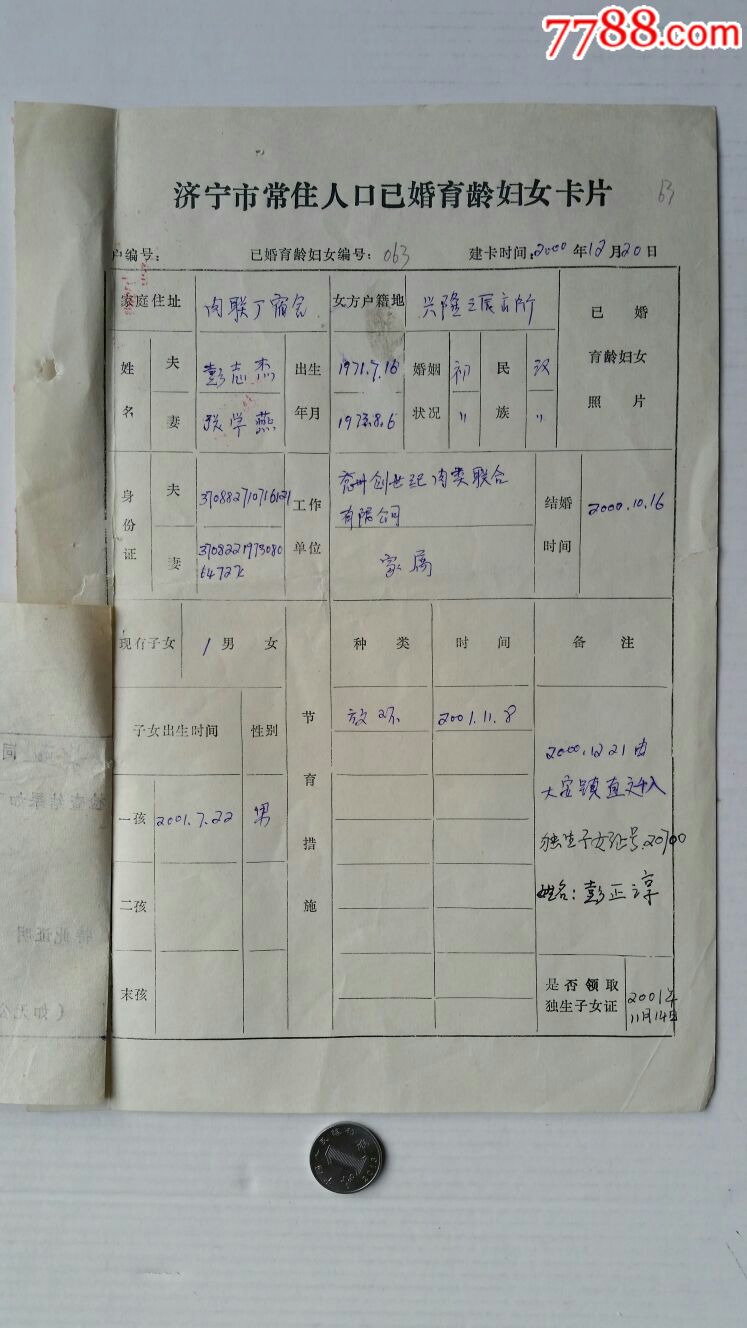 7788.com
济宁市常住人口已婚育龄妇女卡片
63
户编号: 已婚育龄妇女编号: 063 建卡时间: 2000年12月20日
家庭住址 肉联厂宿舍 女方户籍地 兴隆
已婚
育龄妇女
照片
姓名 夫 彭志杰 出生年月 1971.7.16 婚姻状况 初 民族 汉
妻 学燕 1973.8.6 〃 〃
身份证 夫 工作单位 兖州创世纪肉类联合
有限公司
结婚时间 2000.10.16
妻 家属
现有子女 1男 女 节育措施 种类 时间 备注
子女出生时间 性别 放环 2001.11.8
2000.12.21由
一孩 2001.7.22 男
独生子女证号:20700
姓名:彭正淳
二孩
末孩
是否领取
独生子女证
2001年
11月14日